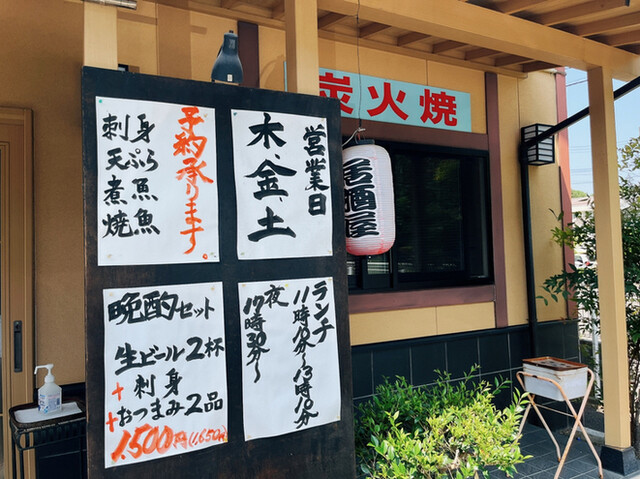 炭火焼
居酒屋
予約承ります
刺身
天ぷら
煮魚
焼魚
営業日
木、金、土
晩酌セット
生ビール2杯
+刺身
+おつまみ2品
1.500円(1,650円)
ランチ
11時00分〜13時10分
夜
17時30分〜